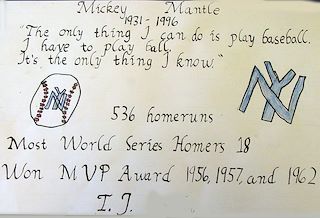 Mickey Mantle
1931-1996
"The only thing I can do is play baseball.
I have to play ball.
It's the only thing I know."
NY
NY
536 homeruns
Most World Series Homers 18
Won MVP Award 1956, 1957, and 1962
T. J.